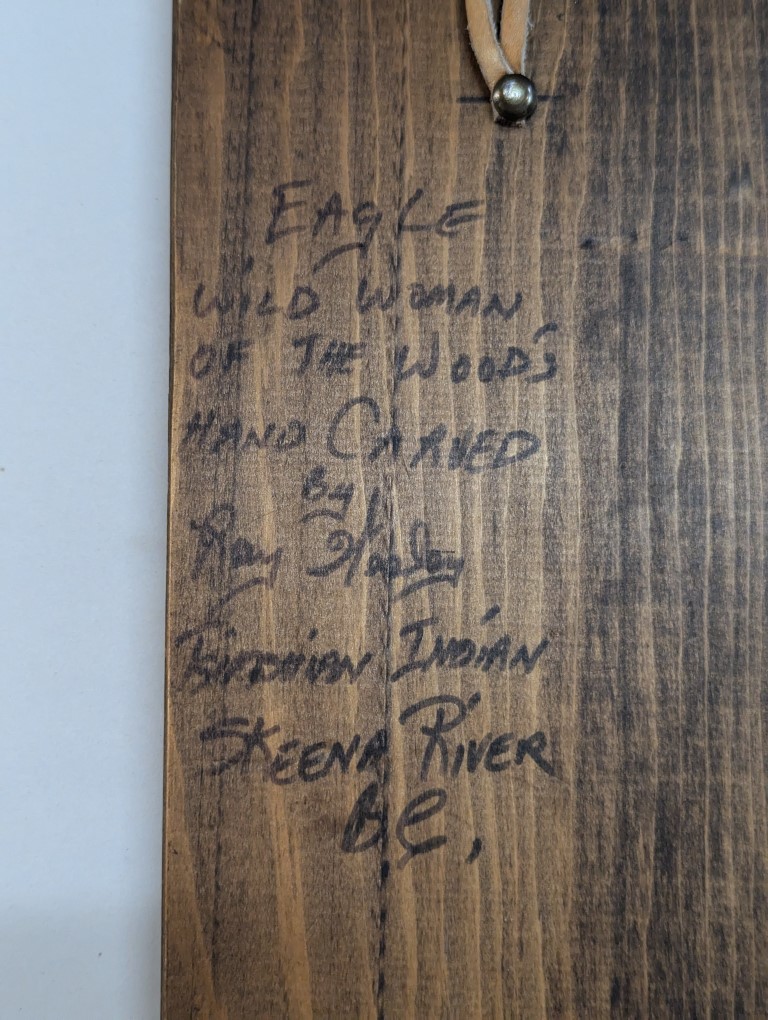 EAGLE
WILD WOMAN
OF THE WOOD'S
HAND CARVED
By
Ray
INDIAN
SKEENA RIVER
B.C,